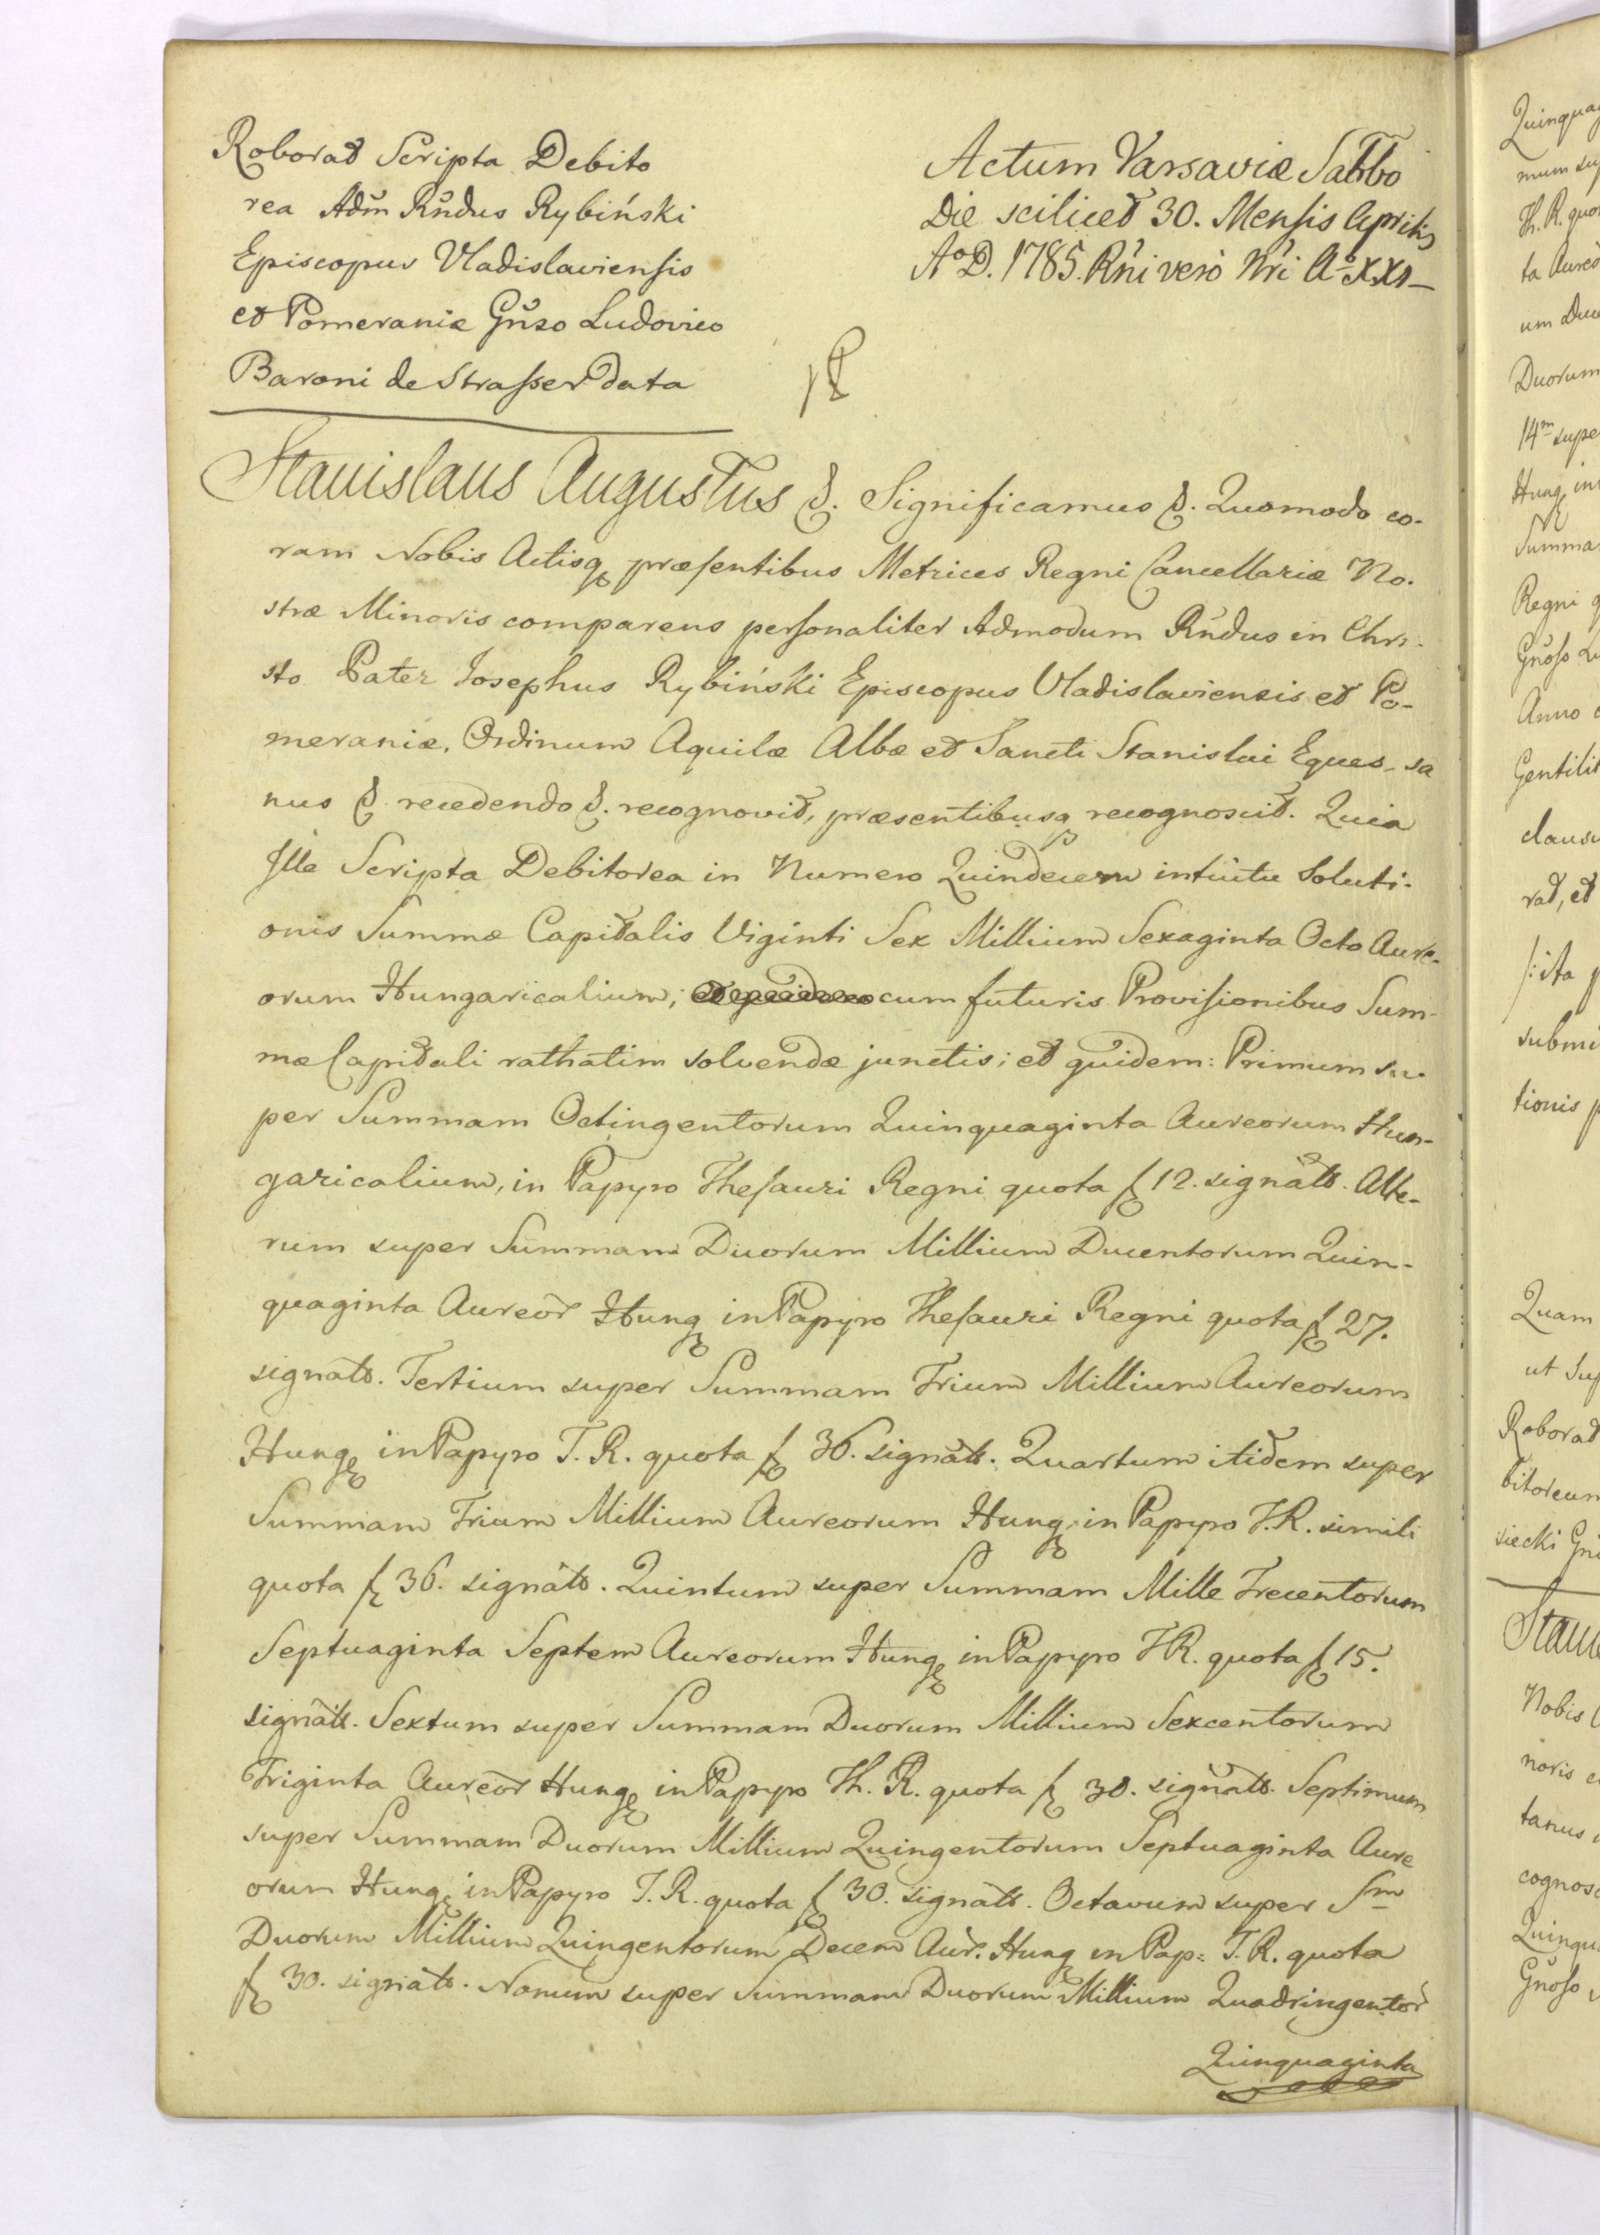 Roborat Scripta Debito
rea Adm̃ Rñdus Rybiński
Episcopus Vladislaviensis
et Pomeraniæ Gñzo Ludovico
Baroni de Strasser data
Actum Varsaviæ Sabbo
Die scilicet 30. Mensis Aprilis
Aº D. 1785. Rñi verò Nri Aº XXI
Stanislaus Augustus &. Significamus &. Quomodo co-
ram Nobis Actisq præsentibus Metrices Regni Cancellariæ No-
stræ Minoris comparens personaliter Admodum Rñdus in Chri-
sto Pater Josephus Rybiński Episcopus Vladislaviensis et Po-
meraniæ, Ordinum Aquilæ Albæ et Sancti Stanislai Eques, sa
nus & recedendo &. recognovit, præsentibusq recognoscit. Quia
Ille Scripta Debitorea in Numero Quindecem intuitu Soluti-
onis Summæ Capitalis Viginti Sex Millium Sexaginta Octo Aure-
orum Hungaricalium, cum futuris Provisionibus Sum-
mæ Capitali rathatim solvendæ junctis; et quidem: Primum su-
per Summam Octingentorum Quinquaginta Aureorum Hun-
garicalium, in Papyro Thesauri Regni quota f 12. signãtt. Alte-
rum super Summam Duorum Millium Ducentorum Quin-
quaginta Aureor̃ Hung in Papyro Thesauri Regni quota f 27.
signãtt. Tertium super Summam Trium Millium Aureorum
Hung in Papyro T. R. quota f 36. signãtt. Quartum itidem super
Summam Trium Millium Aureorum Hung in Papyro T. R. simili
quota f 36. signãtt. Quintum super Summam Mille Trecentorum
Septuaginta Septem Aureorum Hung in Papyro T R. quota f 15.
signãtt. Sextum super Summam Duorum Millium Sexcentorum
Triginta Aureor̃ Hung in Papyro Th. R. quota f 30. signãtt. Septimum
super Summam Duorum Millium Quingentorum Septuaginta Aure
orum Hung in Papyro T. R. quota f 30. signãtt. Octavum super Sm̃
Duorum Millium Quingentorum Decem Aur̃. Hung in Pap: T. R. quota
f 30. signãtt. Nonum super Summam Duorum Millium Quadringentor̃
Quinquaginta
mum
Th. R.
um
Duorum
14m
Hung
Summa
Regni
Anno
rad, et
/: ita
tionis
Quam
ut
Roborat
Nobis
noris
tanus